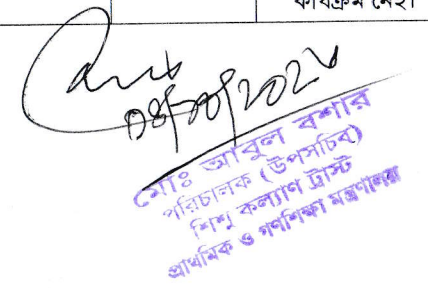 কার্যক্রম নেই।
মোঃ আবুল বশার
পরিচালক (উপসচিব)
শিশু কল্যাণ ট্রাস্ট
প্রাথমিক ও গণশিক্ষা মন্ত্রণালয়